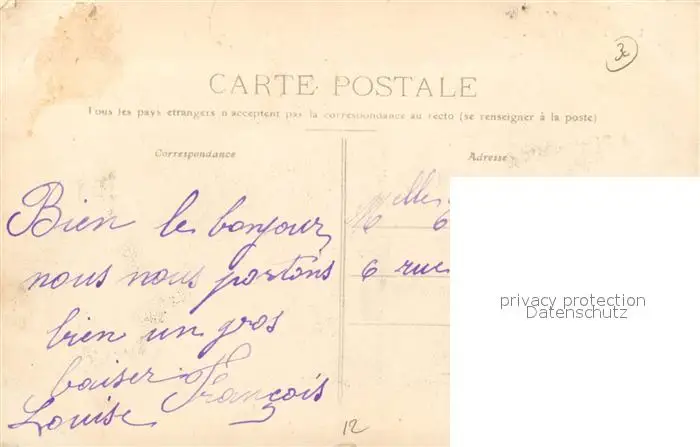 3c
CARTE POSTALE
Tous les pays etrangers n'acceptent pas la correspondance au recto (se renseigner à la poste)
Correspondance
Adresse
Bien le bonjour
nous nous portons
bien un gros
baiser François
Louise
Melle
6 rue
12
privacy protection
Datenschutz